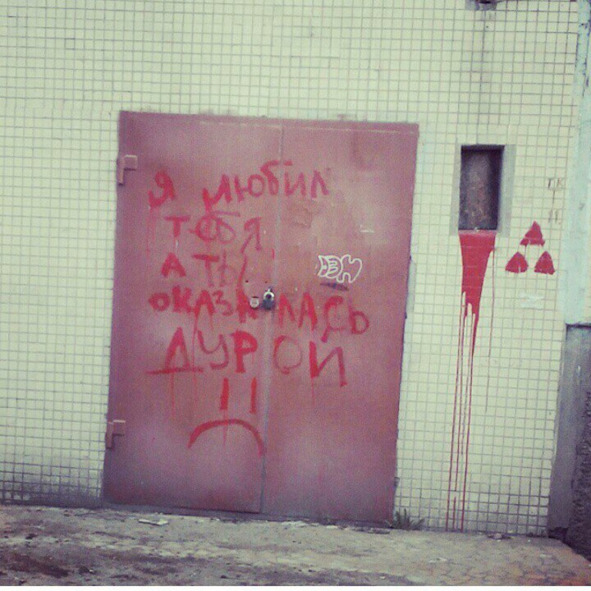 Я ЛЮБИЛ
ТЕБЯ
А ТЫ
ОКАЗАЛАСЬ
ДУРОЙ
!!